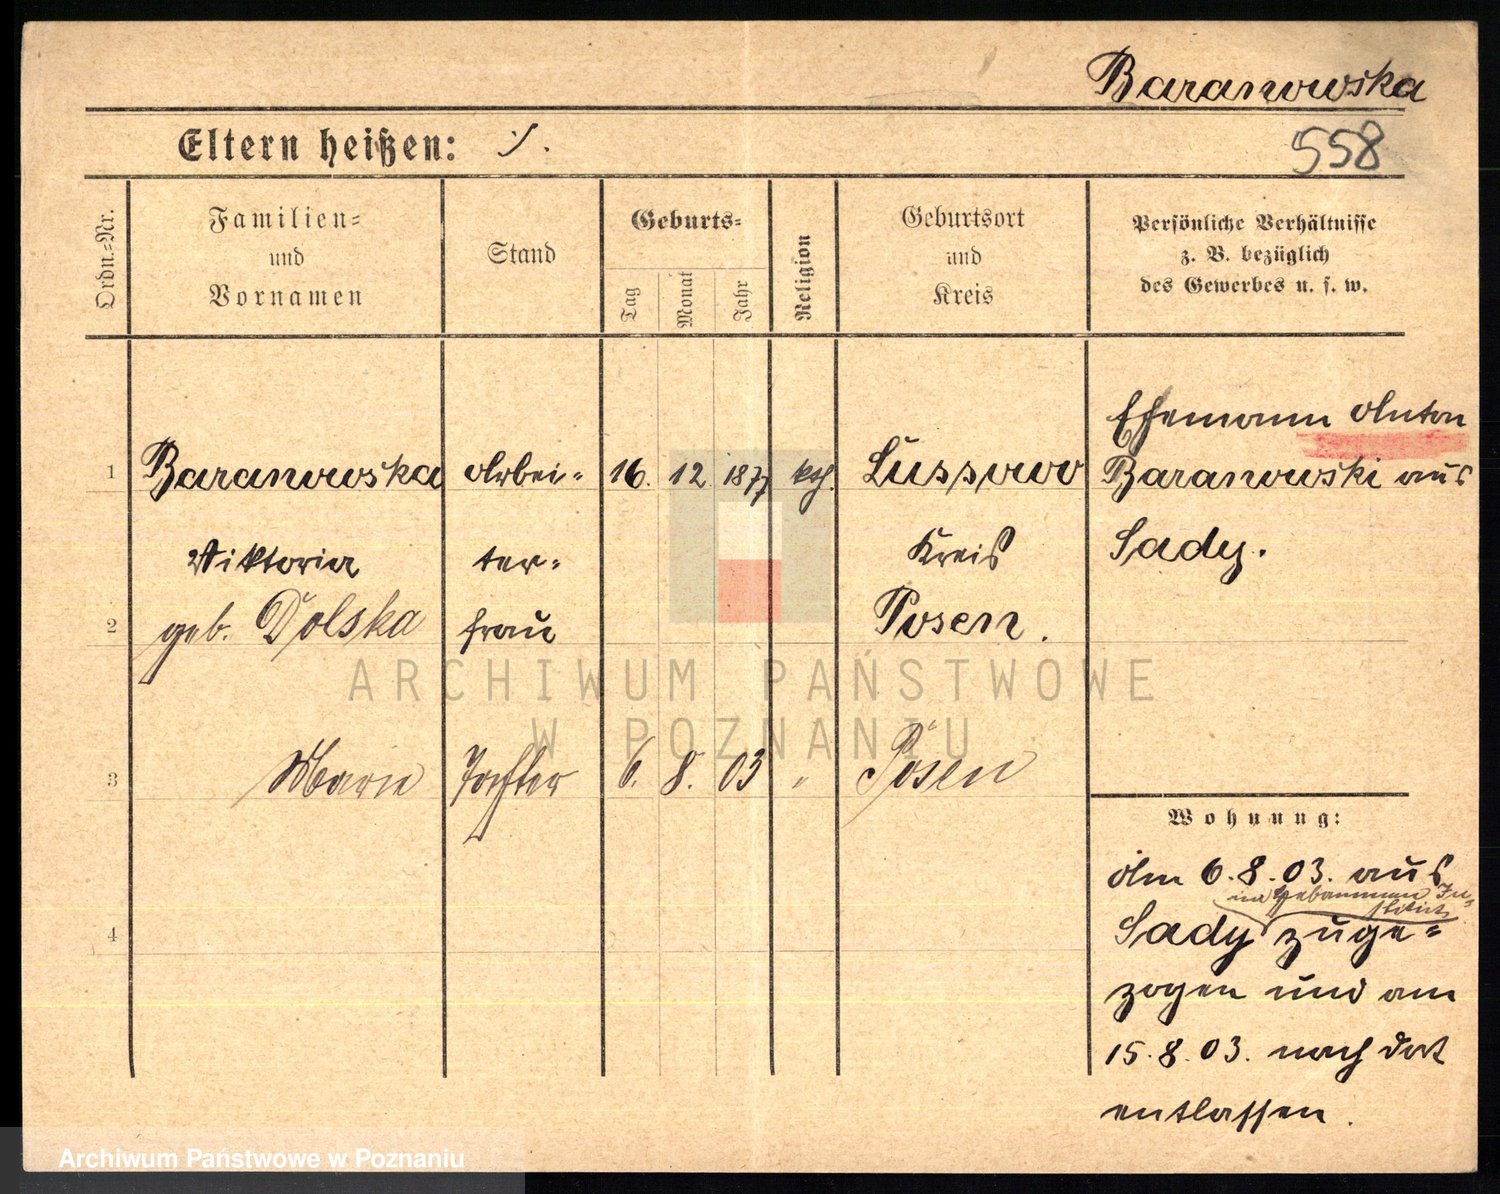 Baranowska
Eltern heißen: ./.
558
Ordn.=Nr.
Familien=
und
Vornamen
Stand
Geburts=
Tag
Monat
Jahr
Religion
Geburtsort
und
Kreis
Persönliche Verhältnisse
z. B. bezüglich
des Gewerbes u. s. w.
Ehemann Anton
1 Baranowska Arbei= 16. 12. 1877 kth. Lussowo Baranowski aus
Viktoria ter= Kreis Sady.
2 geb. Dolska frau Posen.
3 Marie Tochter 6. 8. 03 " Posen
Wohnung:
Am 6.8.03. aus
ins Hebammen In=
stitut
4 Sady zuge=
zogen und am
15.8.03. nach dort
entlassen.
ARCHIWUM PAŃSTWOWE
W POZNANIU
Archiwum Państwowe w Poznaniu